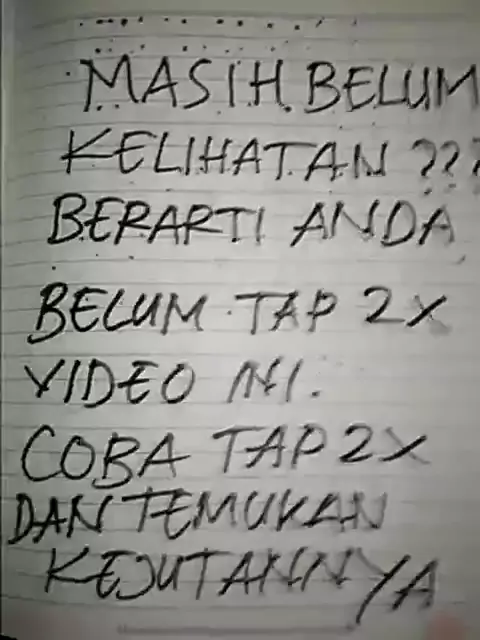 MASIH BELUM
KELIHATAN ???
BERARTI ANDA
BELUM TAP 2X
VIDEO INI.
COBA TAP 2X
DAN TEMUKAN
KEJUTANNYA